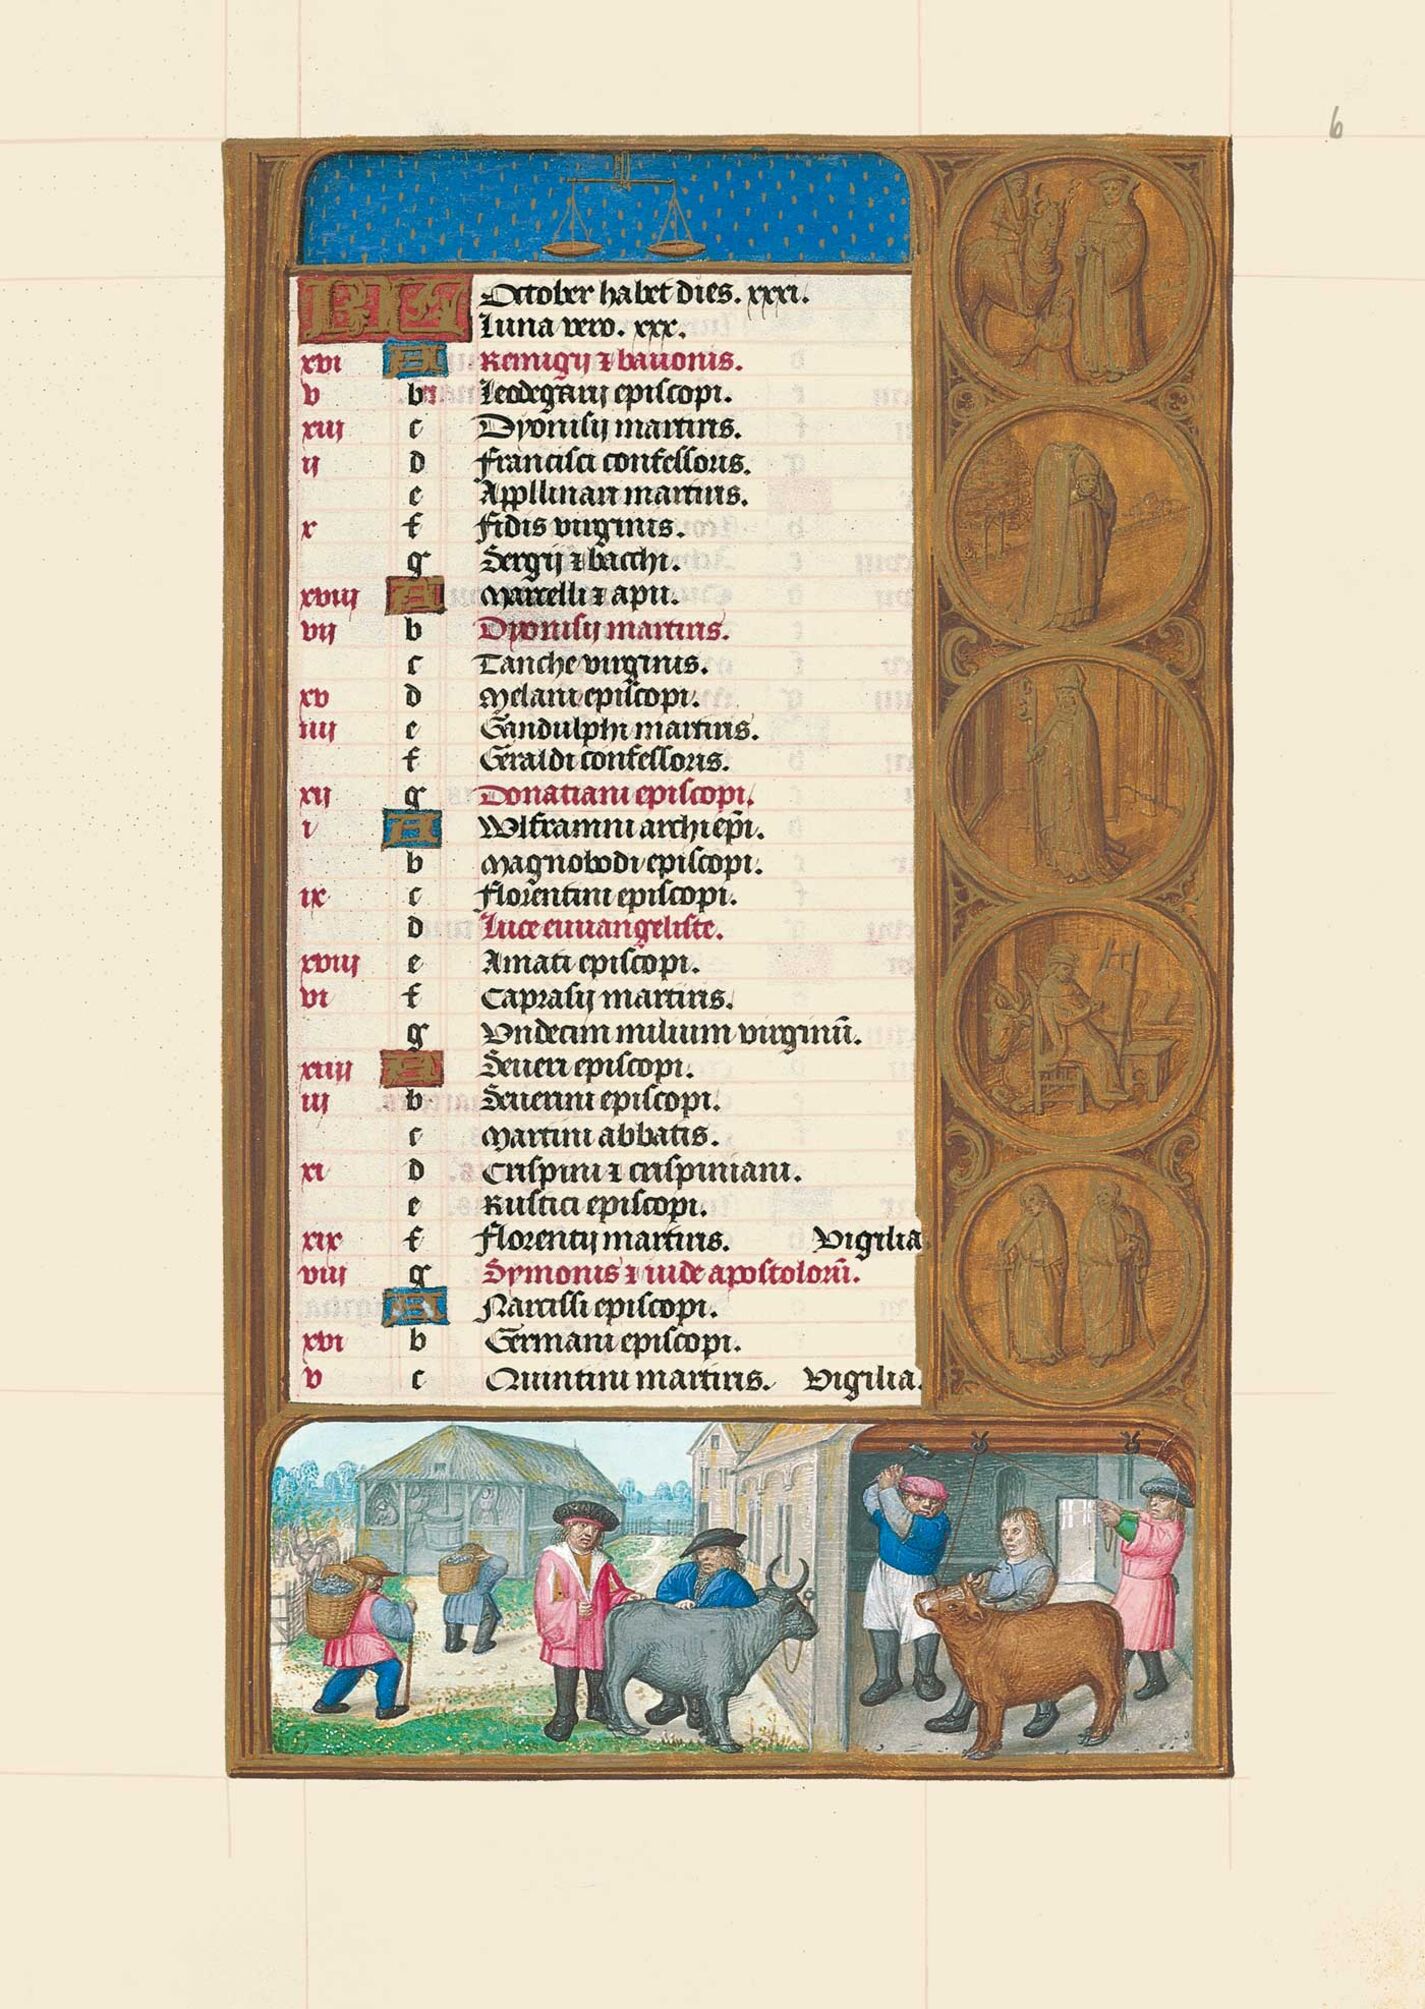 6
KL October habet dies. xxxi.
Luna vero. xxx.
xvi A Remigij ⁊ bavonis.
v b Leodegarij episcopi.
xiij c Dyonisij martiris.
ij d Francisci confessoris.
e Appllinari martiris.
x f Fidis virginis.
g Sergij ⁊ bacchi.
xviij A Marcelli ⁊ apu.
vij b Dyonisij martiris.
c Tanche virginis.
xv d Melani episcopi.
iiij e Gandulphi martiris.
f Geraldi confessoris.
xij g Donatiani episcopi.
i A Wlframni archiep̄i.
b Magnobodi episcopi.
ix c Florentini episcopi.
d Luce euuangeliste.
xviij e Amati episcopi.
vi f Caprasij martiris.
g Vndecim milium virginū.
xiiij A Seueri episcopi.
iij b Seuerini episcopi.
c Martini abbatis.
xi d Crispini ⁊ crispiniani.
e Rustici episcopi.
xix f Florentij martiris. Vigilia.
viij g Symonis ⁊ iude apostolorū.
A Narcissi episcopi.
xvi b Germani episcopi.
v c Quintini martiris. Vigilia.